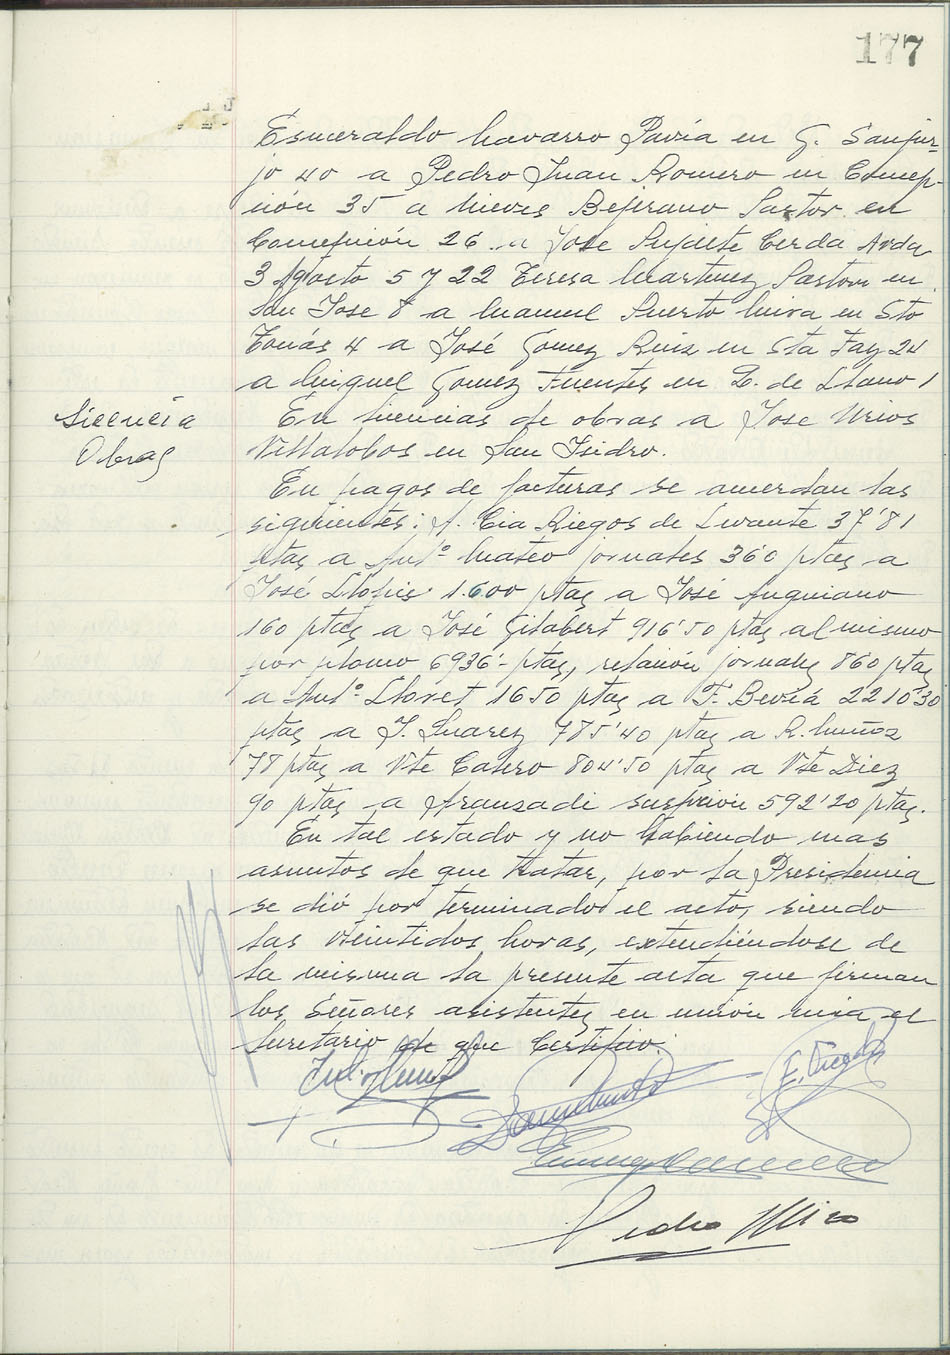 177
Esmeraldo Navarro Pavía en G. Sanjur-
jo 40 a Pedro Juan Romero en Concep-
ción 35 a Nieves Bejerano Pastor en
Concepción 26 a José Cerdá Avda
3 Agosto 5 y 22 Teresa Martinez Pastor en
San Jose 8 a Manuel Puerto Mira en Sto
Tomás 4 a José Gomez Ruiz en Sta Faz 24
a Miguel Gomez Fuentes en Q. de Llano 1
Licencia
Obras
En licencias de obras a Jose Urios
Villalobos en San Isidro.
En pagos de facturas se acuerdan las
siguientes: A. Cia Riegos de Levante 37'81
ptas a Antº Mateo jornales 360 ptas a
José Llopis 1.600 ptas a José Anguiano
160 ptas a José Gilabert 916'50 ptas al mismo
por plomo 6936'- ptas, relación jornales 860 ptas
a Antº Lloret 1650 ptas a F. Beviá 2210'30
ptas a J. Suarez 785'40 ptas a R. Muñoz
78 ptas a Vte Casero 804'50 ptas a Vte Diez
90 ptas a Aranzadi suscripción 592'20 ptas.
En tal estado y no habiendo mas
asuntos de que tratar, por la Presidencia
se dió por terminado el acto, siendo
las veintidos horas, extendiéndose de
la misma la presente acta que firman
los Señores asistentes en unión mia el
Secretario de que Certifico.
Pedro Mira